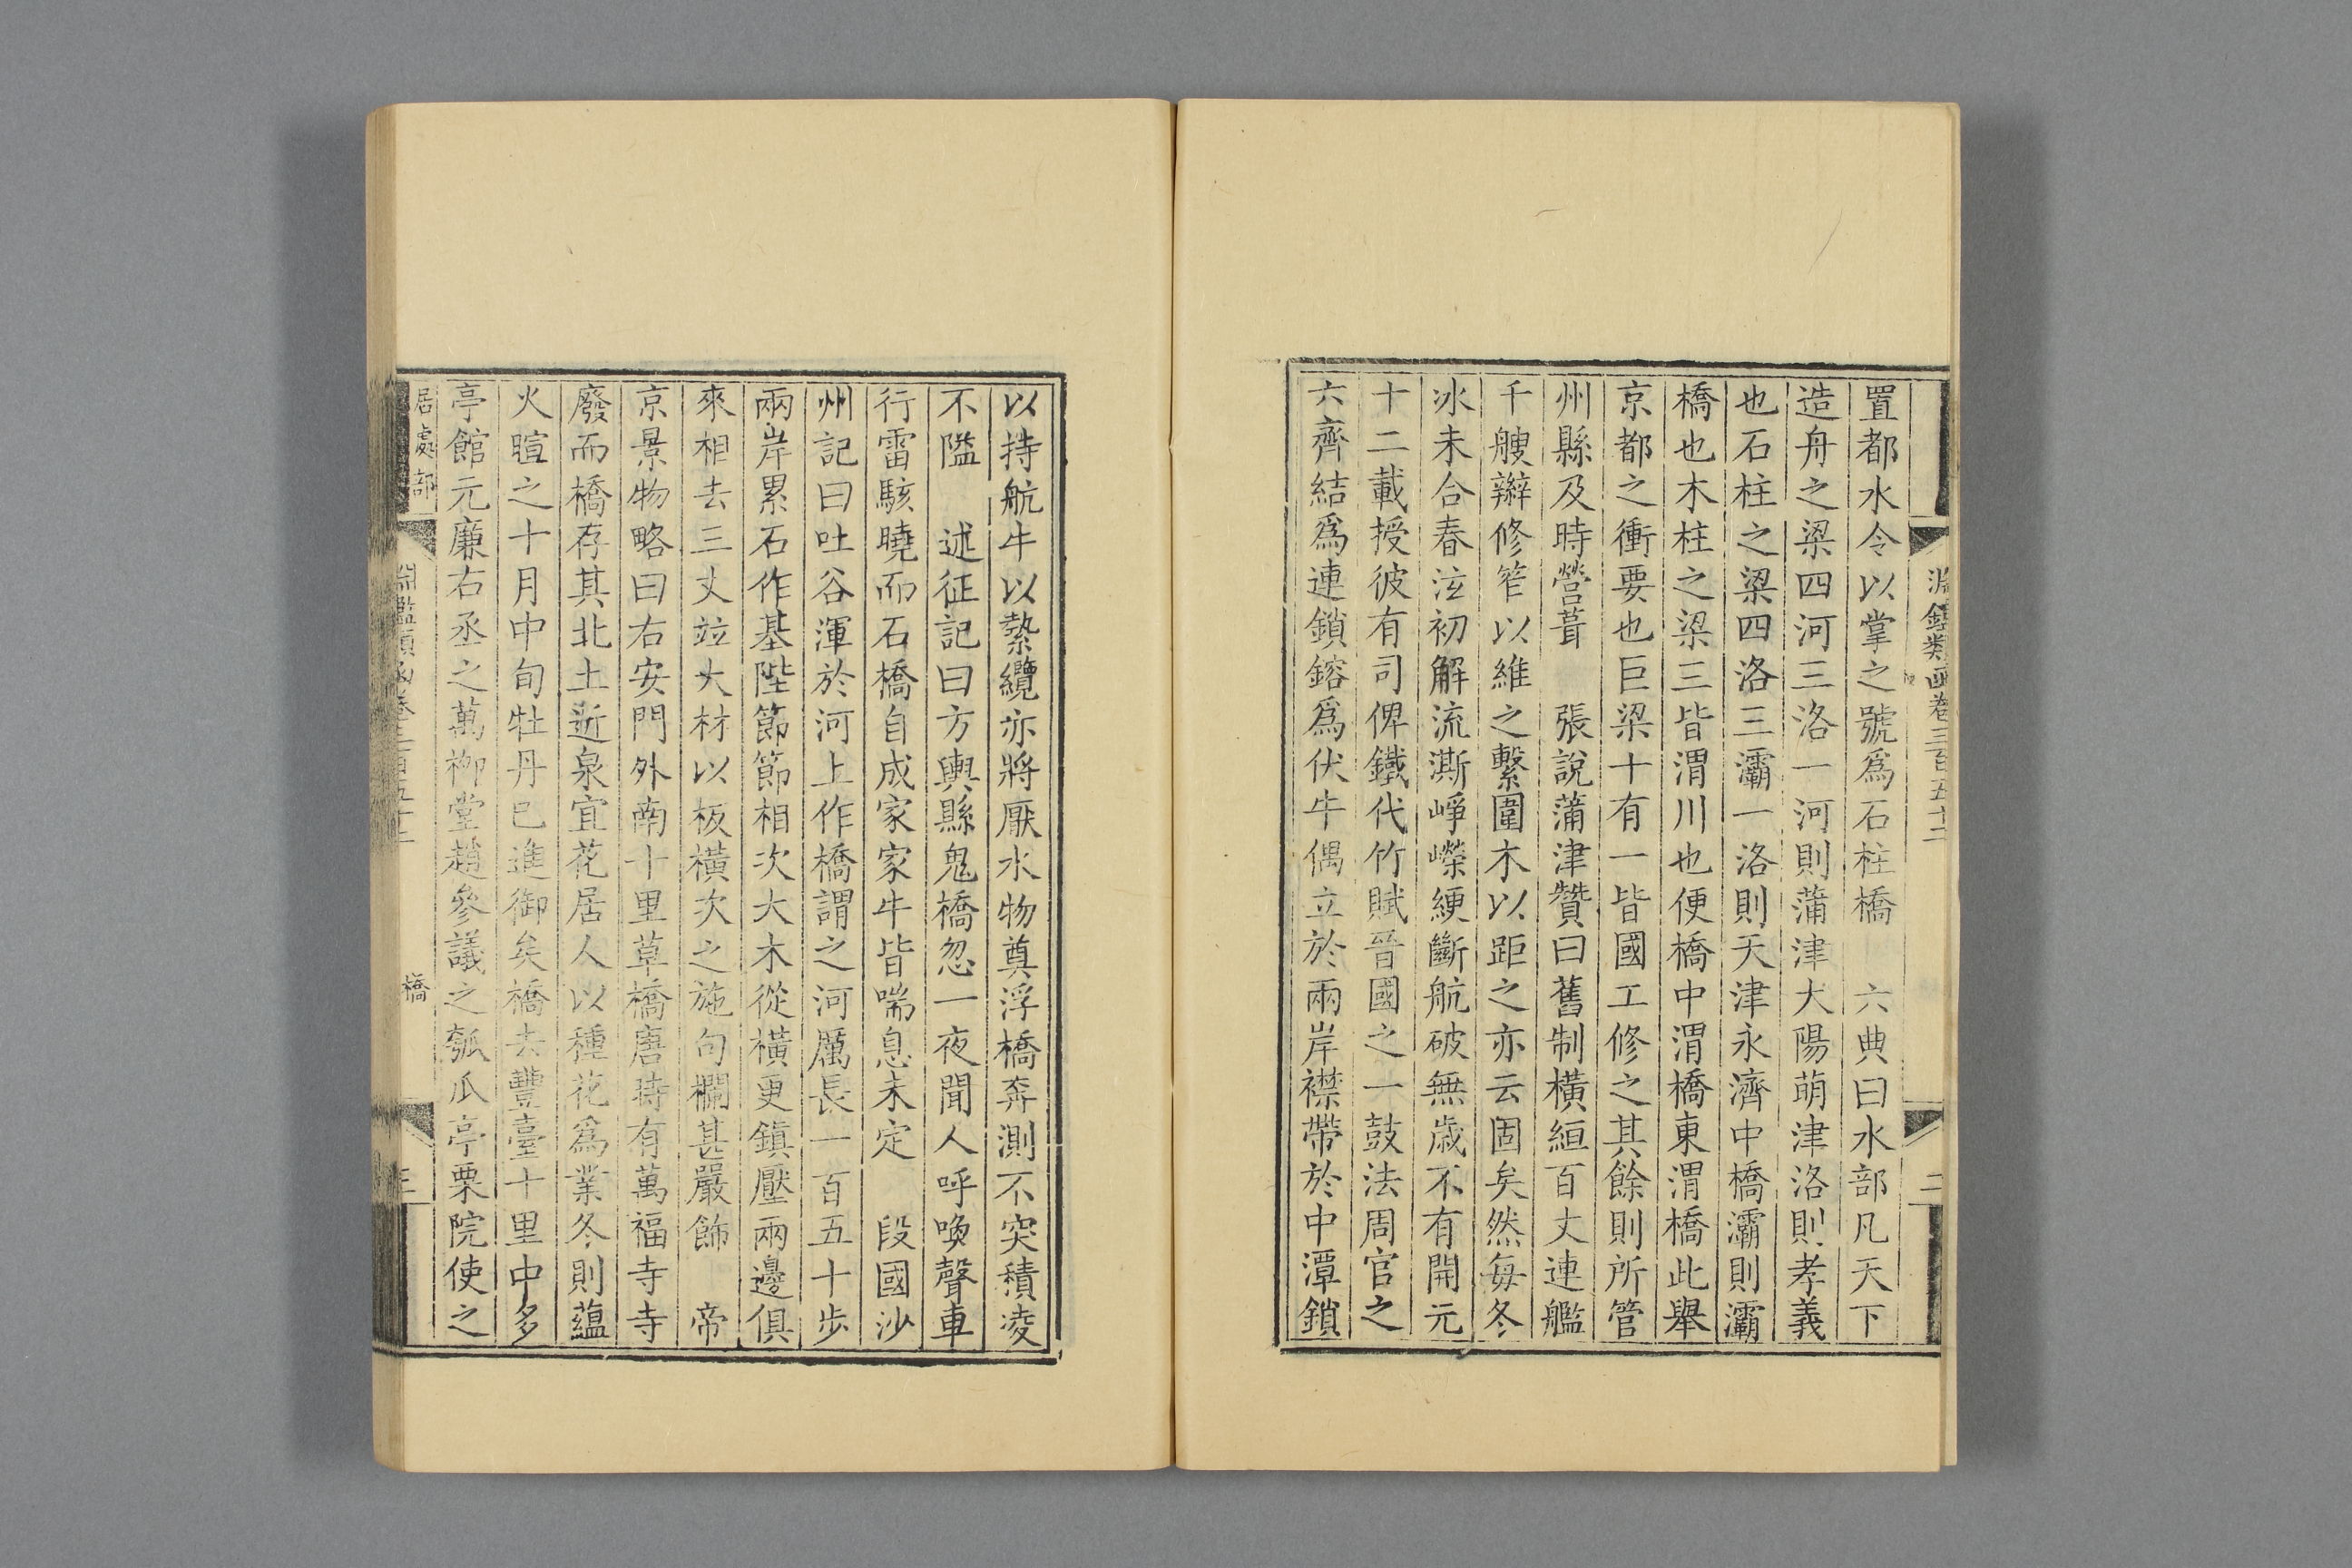 淵鑑類函卷三百五十二
二
置都水令以掌之號爲石柱橋　六典曰水部凡天下
造舟之梁四河三洛一河則蒲津大陽萌津洛則孝義
也石柱之梁四洛三灞一洛則天津永濟中橋灞則灞
橋也木柱之梁三皆渭川也便橋中渭橋東渭橋此舉
京都之衝要也巨梁十有一皆國工修之其餘則所管
州縣及時營葺　張說蒲津贊曰舊制橫絙百丈連艦
千艘辮修笮以維之繫圍木以距之亦云固矣然每冬
冰未合春泣初解流澌崢嶸綆斷航破無歲不有開元
十二載授彼有司俾鐵代竹賦晉國之一鼓法周官之
六齊結爲連鎖鎔爲伏牛偶立於兩岸襟帶於中潭鎖
以持航牛以縶纜亦將厭水物奠浮橋奔測不突積凌
不隘　述征記曰方輿縣鬼橋忽一夜聞人呼喚聲車
行雷駭曉而石橋自成家家牛皆喘息未定　段國沙
州記曰吐谷渾於河上作橋謂之河厲長一百五十步
兩岸累石作基陛節節相次大木從橫更鎮壓兩邊俱
來相去三丈竝大材以板橫次之施句欄甚嚴飾　帝
京景物略曰右安門外南十里草橋唐時有萬福寺寺
廢而橋存其北土近泉宜花居人以種花爲業冬則蘊
火暄之十月中旬牡丹已進御矣橋去豐臺十里中多
亭館元廉右丞之萬柳堂趙參議之瓠瓜亭栗院使之
居處部
淵鑑類函卷三百五十二
橋
三